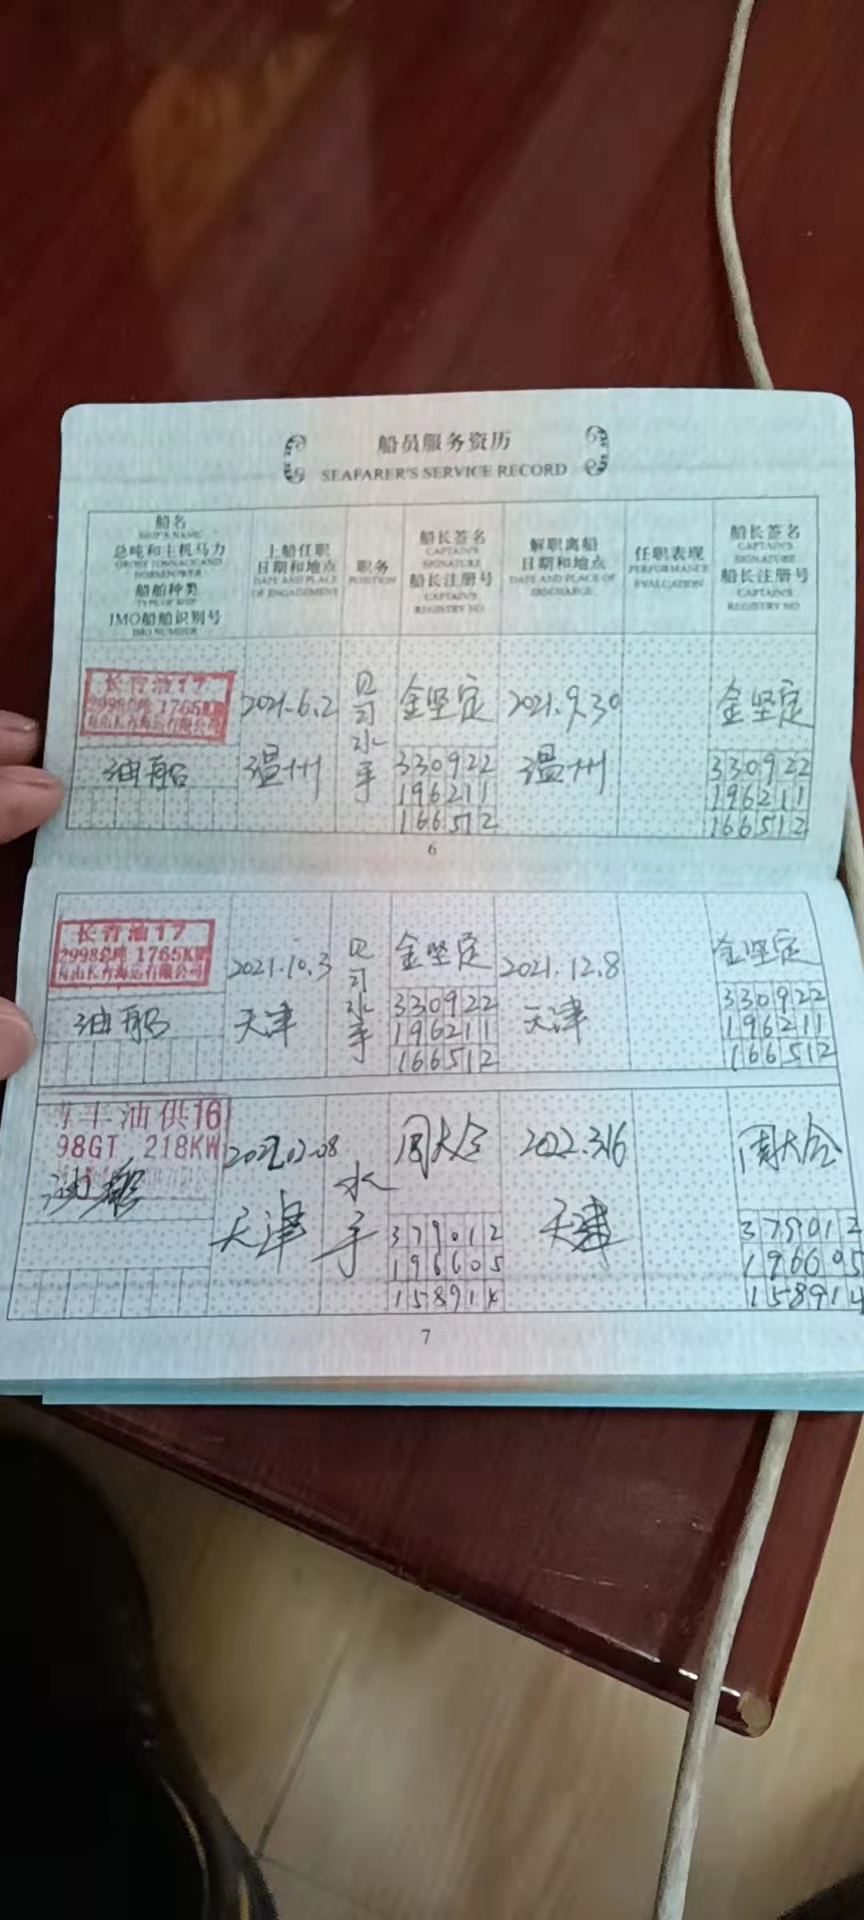 船员服务资历
SEAFARER'S SERVICE RECORD
船名
SHIP'S NAME
总吨和主机马力
GROSS TONNAGE AND
HORSEPOWER
船舶种类
TYPE OF SHIP
IMO船舶识别号
IMO NUMBER
上船任职
日期和地点
DATE AND PLACE
OF ENGAGEMENT
职务
POSITION
船长签名
CAPTAIN'S
SIGNATURE
船长注册号
CAPTAIN'S
REGISTRY NO
解职离船
日期和地点
DATE AND PLACE OF
DISCHARGE
任职表现
PERFORMANCE
EVALUATION
船长签名
CAPTAIN'S
SIGNATURE
船长注册号
CAPTAIN'S
REGISTRY NO
长青油17
2998总吨 1765KW
舟山长青海运有限公司
油船
2021.6.2
温州
见习水手
金坚定
330922
196211
166512
2021.9.30
温州
金坚定
330922
196211
166512
6
长青油17
2998总吨 1765KW
舟山长青海运有限公司
油船
2021.10.3
天津
见习水手
金坚定
330922
196211
166512
2021.12.8
天津
金坚定
330922
196211
166512
丰油供16
98GT 218KW
油船
天津
水手
周大会
379012
196605
158914
2022.3.16
天津
周大会
379012
196605
158914
7